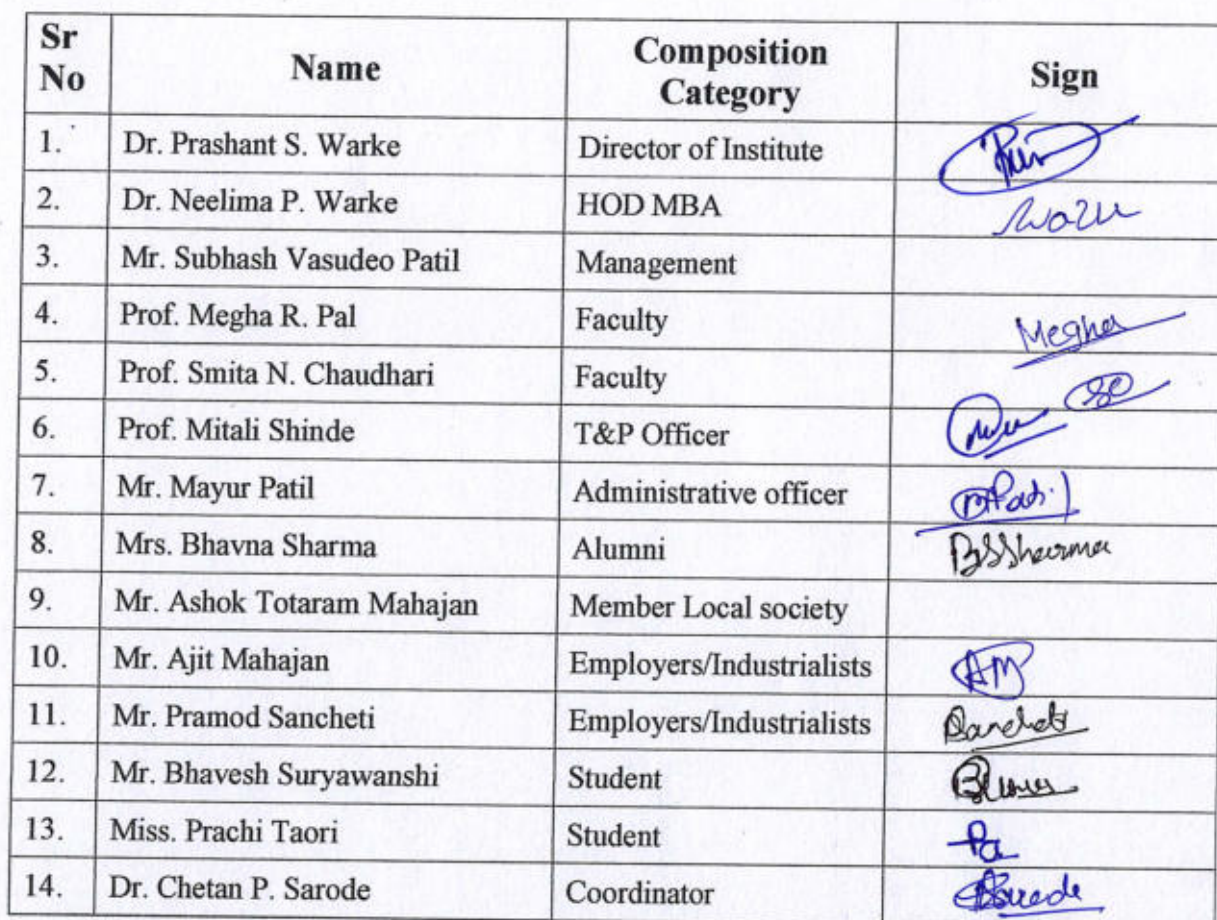 Sr No Name Composition Category Sign
1. Dr. Prashant S. Warke Director of Institute
2. Dr. Neelima P. Warke HOD MBA
3. Mr. Subhash Vasudeo Patil Management
4. Prof. Megha R. Pal Faculty Megha
5. Prof. Smita N. Chaudhari Faculty
6. Prof. Mitali Shinde T&P Officer
7. Mr. Mayur Patil Administrative officer
8. Mrs. Bhavna Sharma Alumni BSSharma
9. Mr. Ashok Totaram Mahajan Member Local society
10. Mr. Ajit Mahajan Employers/Industrialists AM
11. Mr. Pramod Sancheti Employers/Industrialists
12. Mr. Bhavesh Suryawanshi Student
13. Miss. Prachi Taori Student
14. Dr. Chetan P. Sarode Coordinator